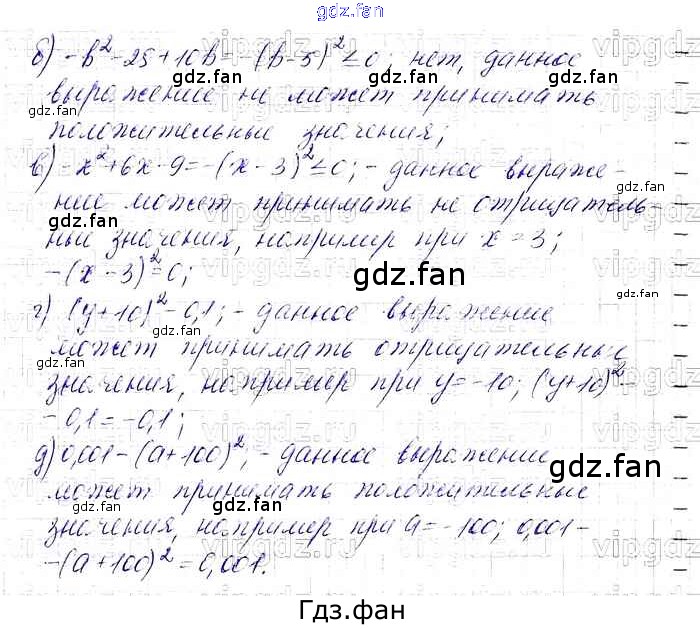 gdz.fan
б) -b²-25+10b=-(b-5)²≤0; нет, данное
выражение не может принимать
положительные значения;
в) -x²+6x-9=-(x-3)²≤0; - данное выраже-
ние может принимать не отрицатель-
ные значения, например при x=3;
-(x-3)²=0;
г) (y+10)²-0,1; - данное выражение
может принимать отрицательные
значения, например при y=-10; (y+10)²-
-0,1=-0,1;
д) 0,001-(a+100)²; - данное выражение
может принимать положительные
значения, например при a=-100; 0,001-
-(a+100)²=0,001.
Гдз.фан